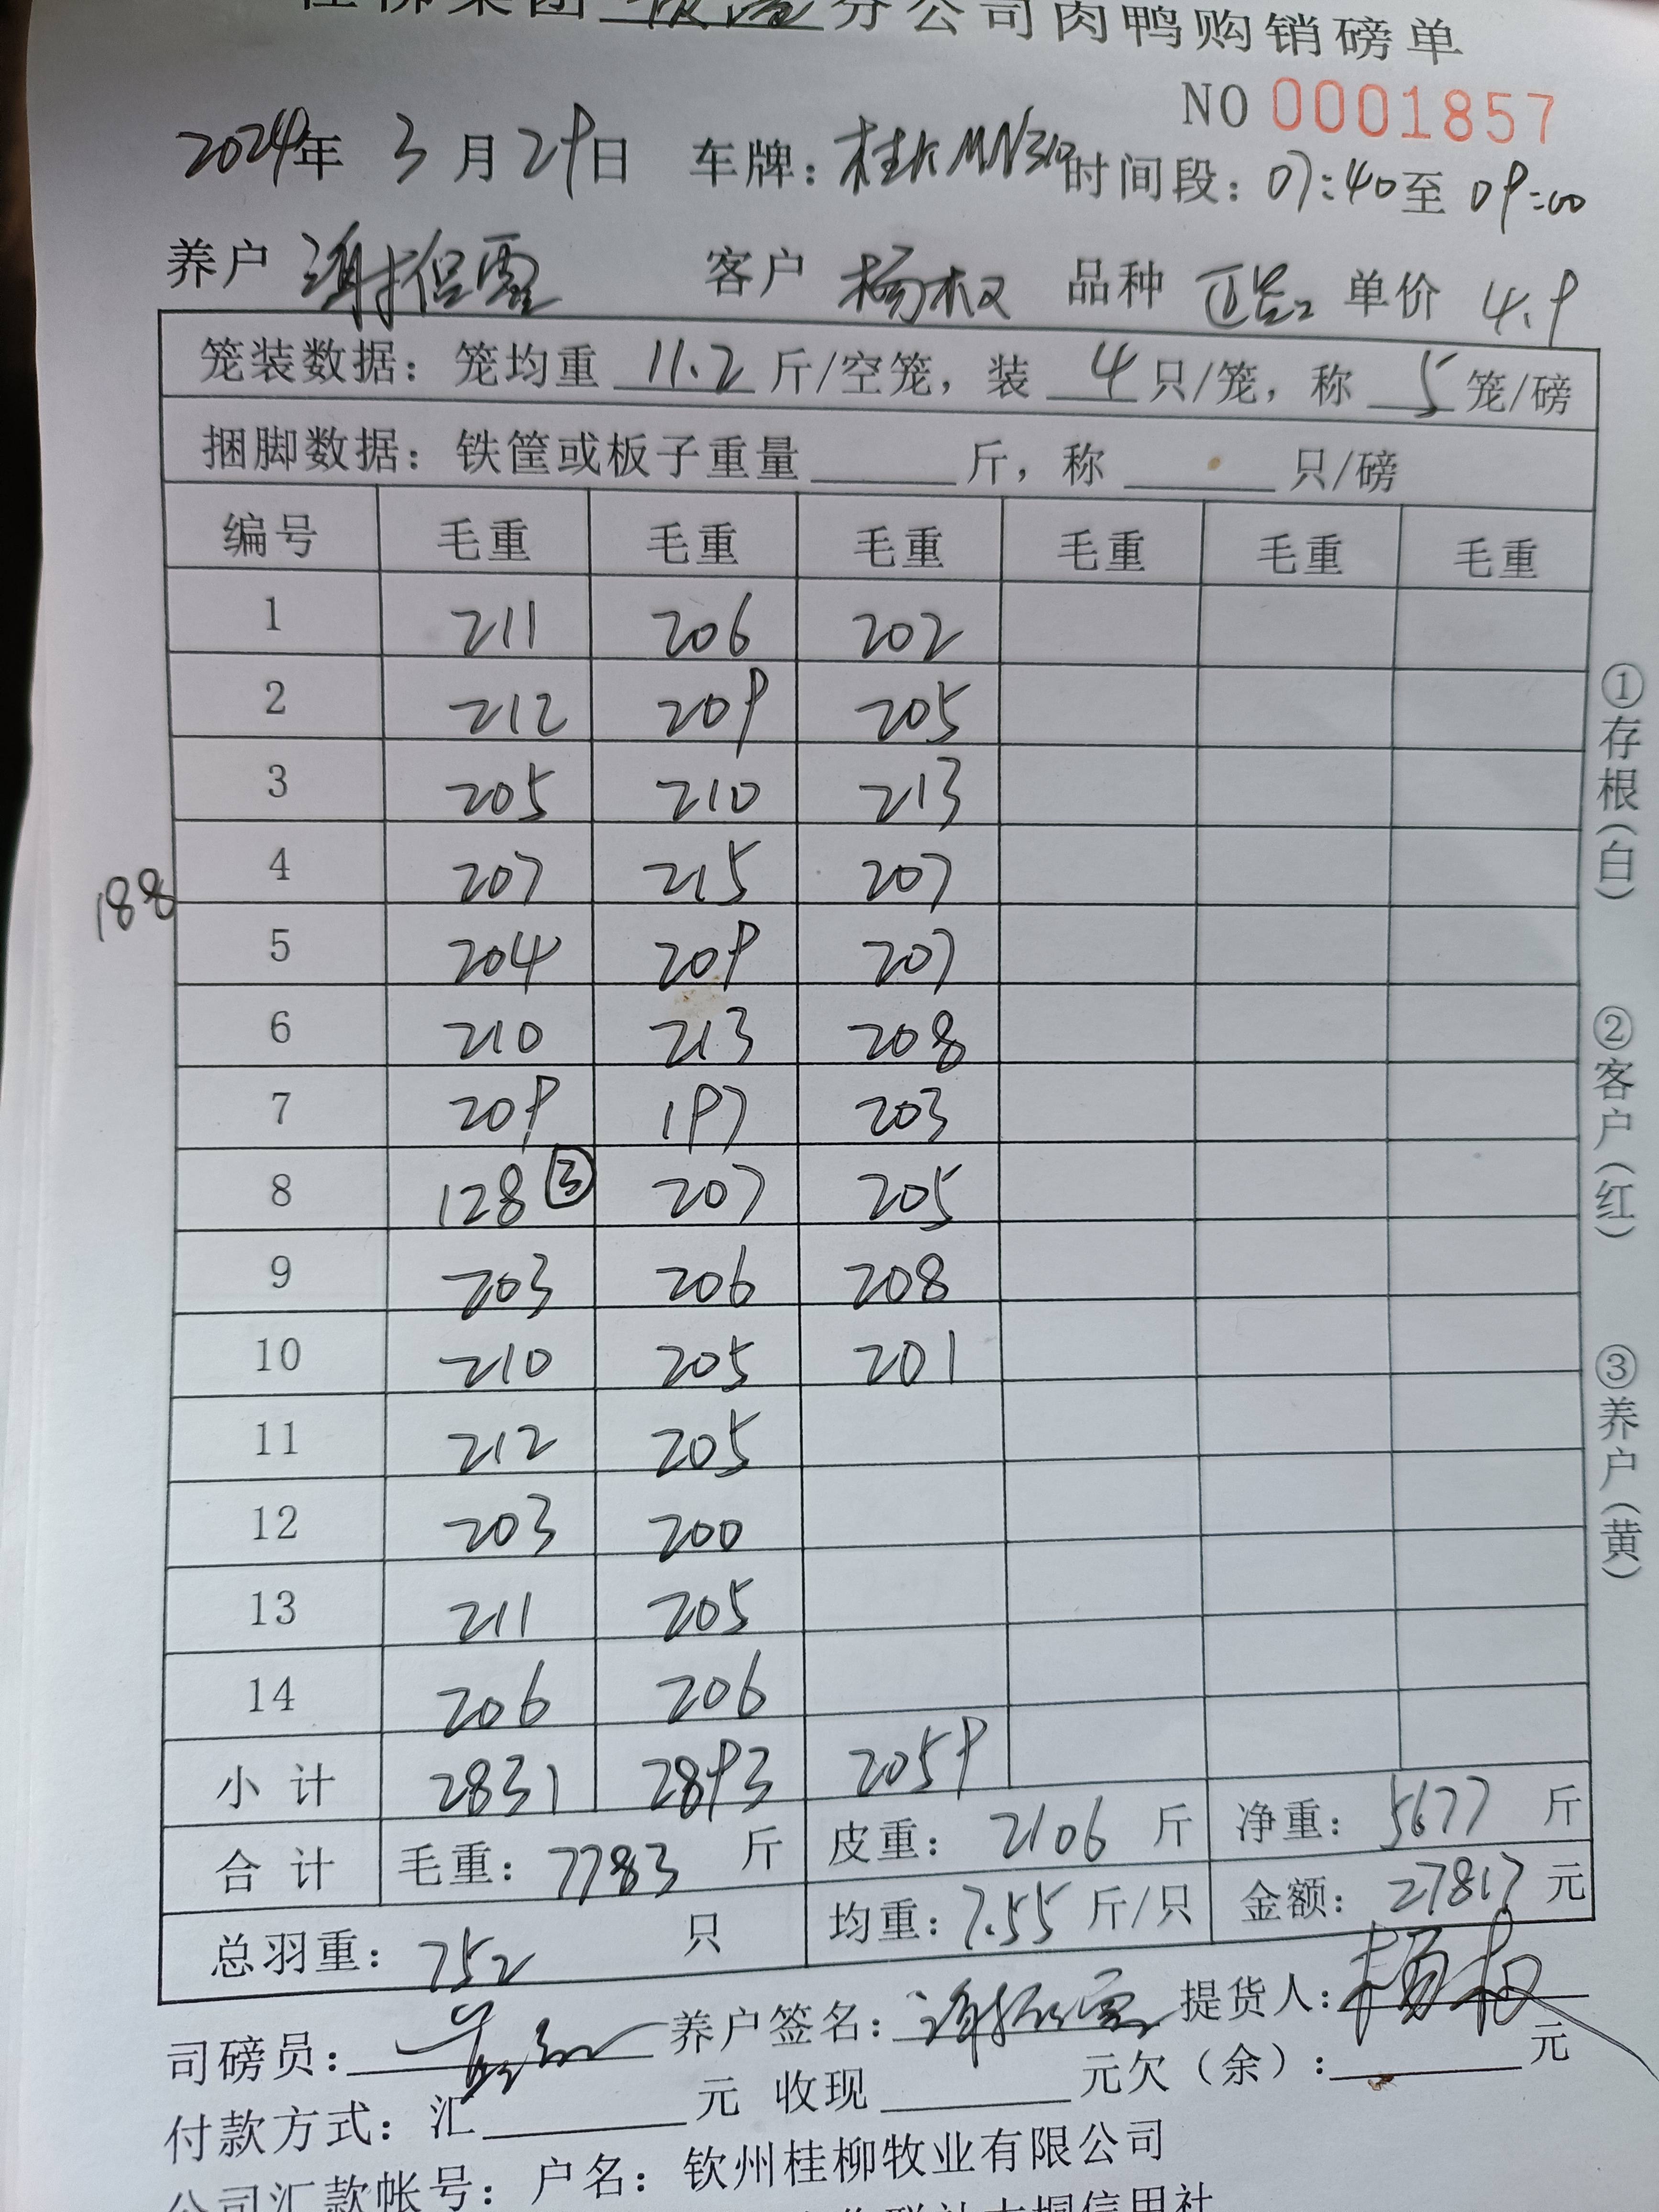 桂柳集团 分公司肉鸭购销磅单
NO 0001857
2024年 3月29日 车牌: 时间段: 07:40至09:00
养户 谢振雲 客户 杨权 品种 正品 单价 4.9
笼装数据: 笼均重 11.2 斤/空笼, 装 4 只/笼, 称 5 笼/磅
捆脚数据: 铁筐或板子重量 斤, 称 只/磅
编号 毛重 毛重 毛重 毛重 毛重 毛重
1 211 206 202
2 212 209 205
3 205 210 213
4 207 215 207
188
5 204 209 207
6 210 213 208
7 209 197 203
8 128③ 207 205
9 203 206 208
10 210 205 201
11 212 205
12 203 200
13 211 205
14 206 206
小计 2831 2893 2059
合计 毛重: 7783 斤 皮重: 2106 斤 净重: 5677 斤
总羽重: 752 只 均重: 7.55 斤/只 金额: 27817 元
司磅员: 养户签名: 谢振雲 提货人: 杨权
付款方式: 汇 元 收现 元欠(余): 元
公司汇款帐号: 户名: 钦州桂柳牧业有限公司
①存根(白) ②客户(红) ③养户(黄)